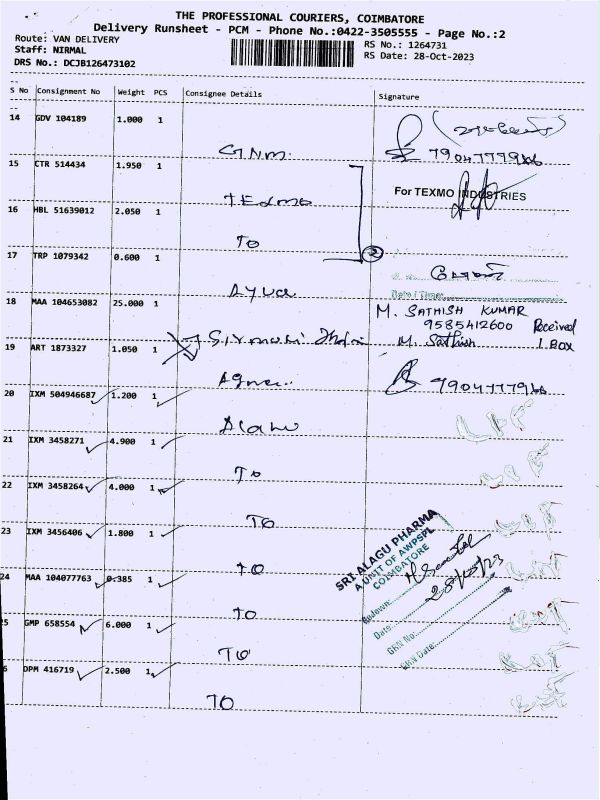 THE PROFESSIONAL COURIERS, COIMBATORE
Delivery Runsheet - PCM - Phone No.:0422-3505555 - Page No.:2
Route: VAN DELIVERY
RS No.: 1264731
Staff: NIRMAL
RS Date: 28-Oct-2023
DRS No.: DCJB126473102
S No Consignment No Weight PCS Consignee Details Signature
14 GDV 104189 1.000 1
GNM
15 CTR 514434 1.950 1
For TEXMO INDUSTRIES
16 HBL 51639012 2.050 1
TO
2
17 TRP 1079342 0.600 1
Date / Time
18 MAA 104653082 25.000 1
M. SATHISH KUMAR
9585412600 Received
1 BOX
M. Sathish
19 ART 1873327 1.050 1
20 IXM 504946687 1.200 1
21 IXM 3458271 4.900 1
TO
22 IXM 3458264 4.000 1
TO
23 IXM 3456406 1.800 1
TO
24 MAA 104077763 0.385 1
TO
GMP 658554 6.000 1
TO
DPM 416719 2.500 1
TO
SRI ALAGU PHARMA
A UNIT OF AWPSPL
COIMBATORE
Date
GRN No:
GRN Date: